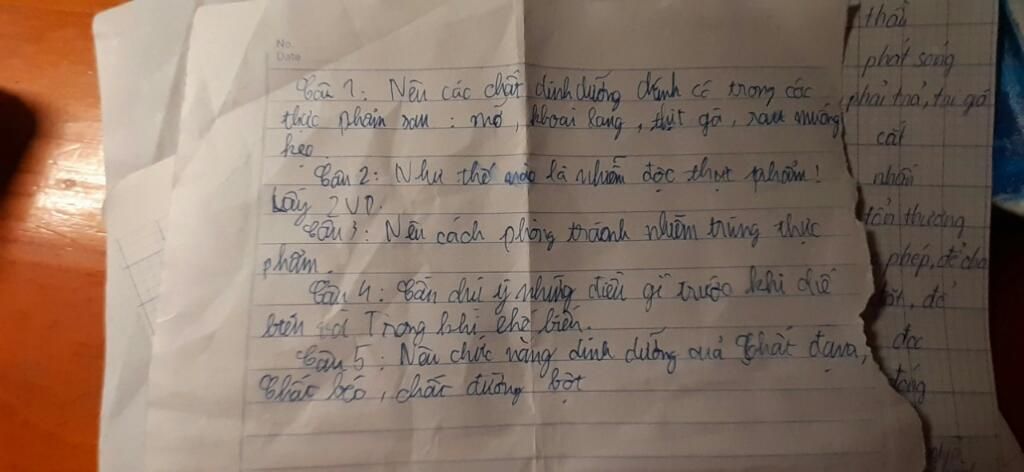 No.
Date
Câu 1: Nêu các chất dinh dưỡng chính có trong các
thực phẩm sau: mỡ, khoai lang, thịt gà, rau muống
kẹo
Câu 2: Như thế nào là nhiễm độc thực phẩm!
Lấy 2 VD.
Câu 3: Nêu cách phòng tránh nhiễm trùng thực
phẩm.
Câu 4: Cần chú ý những điều gì trước khi chế
biến và Trong khi chế biến.
Câu 5: Nêu chức năng dinh dưỡng quả Chất đạm,
Chất béo, chất đường bột
thần
phát sóng
phải trả, tại giá
cất
nhấn
tổn thương
phép, để cho
đọc